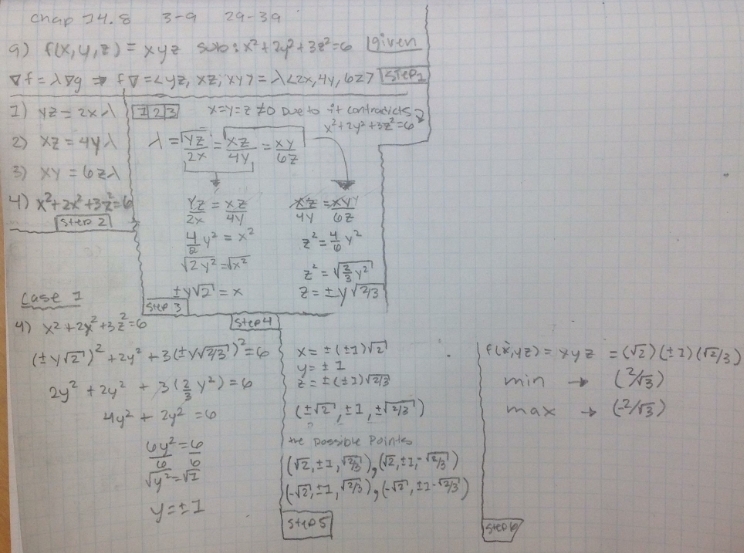 Chap 14.8 3-9 29-39
9) f(x,y,z) = xyz sub: x²+2y²+3z²=6 given
∇f = λ∇g ⇒ f∇=<yz, xz, xy> = λ<2x,4y,6z> Step 1
1) yz = 2xλ
2) xz = 4yλ
3) xy = 6zλ
4) x²+2x²+3z²=6
Step 2
1 2 3 x=y=z≠0 Due to it contradicts
x²+2y²+3z²=6
λ = yz/2x = xz/4y = xy/6z
yz/2x = xz/4y
4/2 y² = x²
√2y² = √x²
±y√2 = x
xz/4y = xy/6z
z² = 4/6 y²
z² = √2/3 y²
z = ±y√2/3
Step 3
Case 1
4) x²+2y²+3z²=6
(±y√2)² + 2y² + 3(±y√2/3)² = 6
2y² + 2y² + 3(2/3 y²) = 6
4y² + 2y² = 6
6y²/6 = 6/6
√y² = √1
y = ±1
Step 4
x = ±(±1)√2
y = ±1
z = ±(±1)√2/3
(±√2, ±1, ±√2/3)
the possible Points
(√2, ±1, √2/3), (√2, ±1, -√2/3)
(-√2, ±1, √2/3), (-√2, ±1 -√2/3)
Step 5
f(x,yz) = xyz = (√2)(±1)(√2/3)
min → (2/√3)
max → (-2/√3)
Step 6